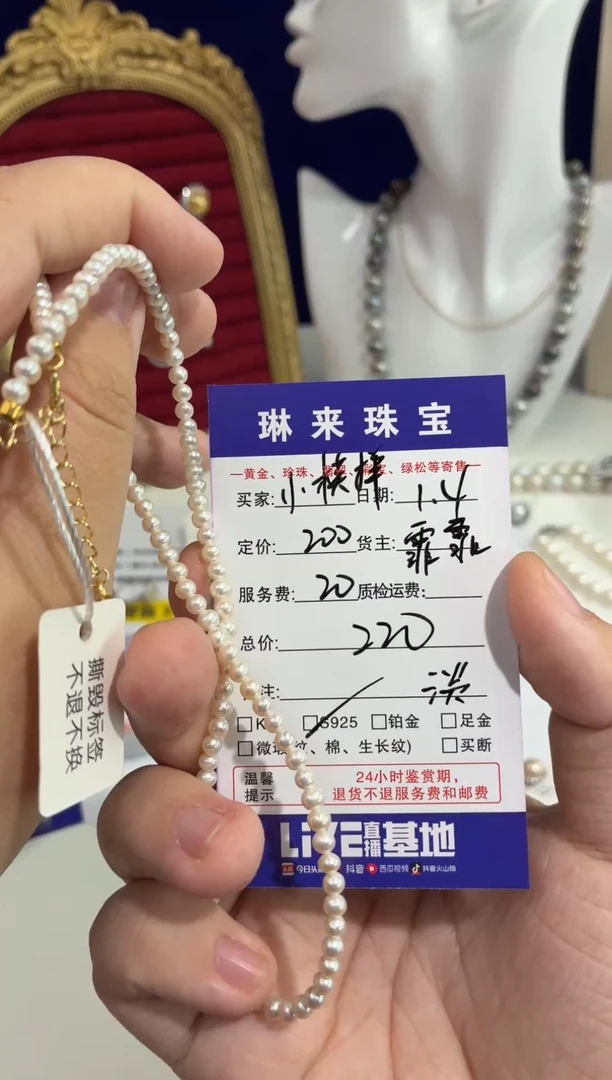 琳来珠宝
黄金、珍珠、翡翠、彩宝、绿松等寄售
买家: 小 日期: 1.4
定价: 200 货主: 霏霏
服务费: 20 质检运费:
总价: 220
注:
K S925 铂金 足金
微瑕(纹、棉、生长纹) 买断
温馨提示 24小时鉴赏期，
退货不退服务费和邮费
LIVE直播基地
今日头条 抖音 西瓜视频 抖音火山版
撕毁标签
不退不换